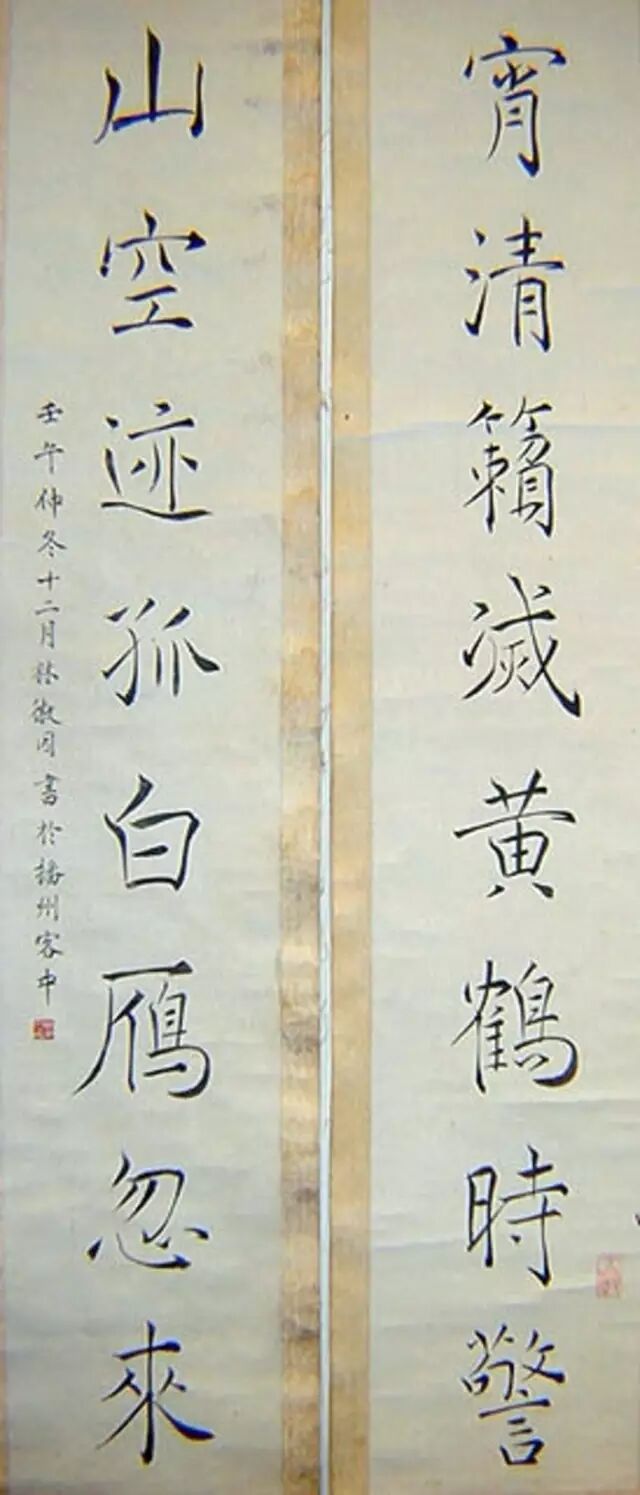 宵清籟滅黄鶴時警
山空迹孤白鴈忽來
壬午仲冬十二月林徽因書於播州客中